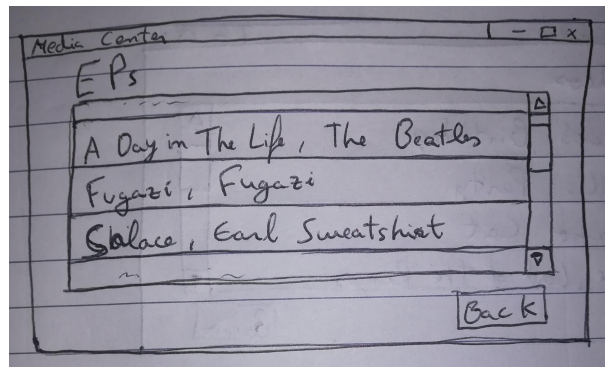 Media Center
EPs
A Day in The Life, The Beatles
Fugazi, Fugazi
Solace, Earl Sweatshirt
Back